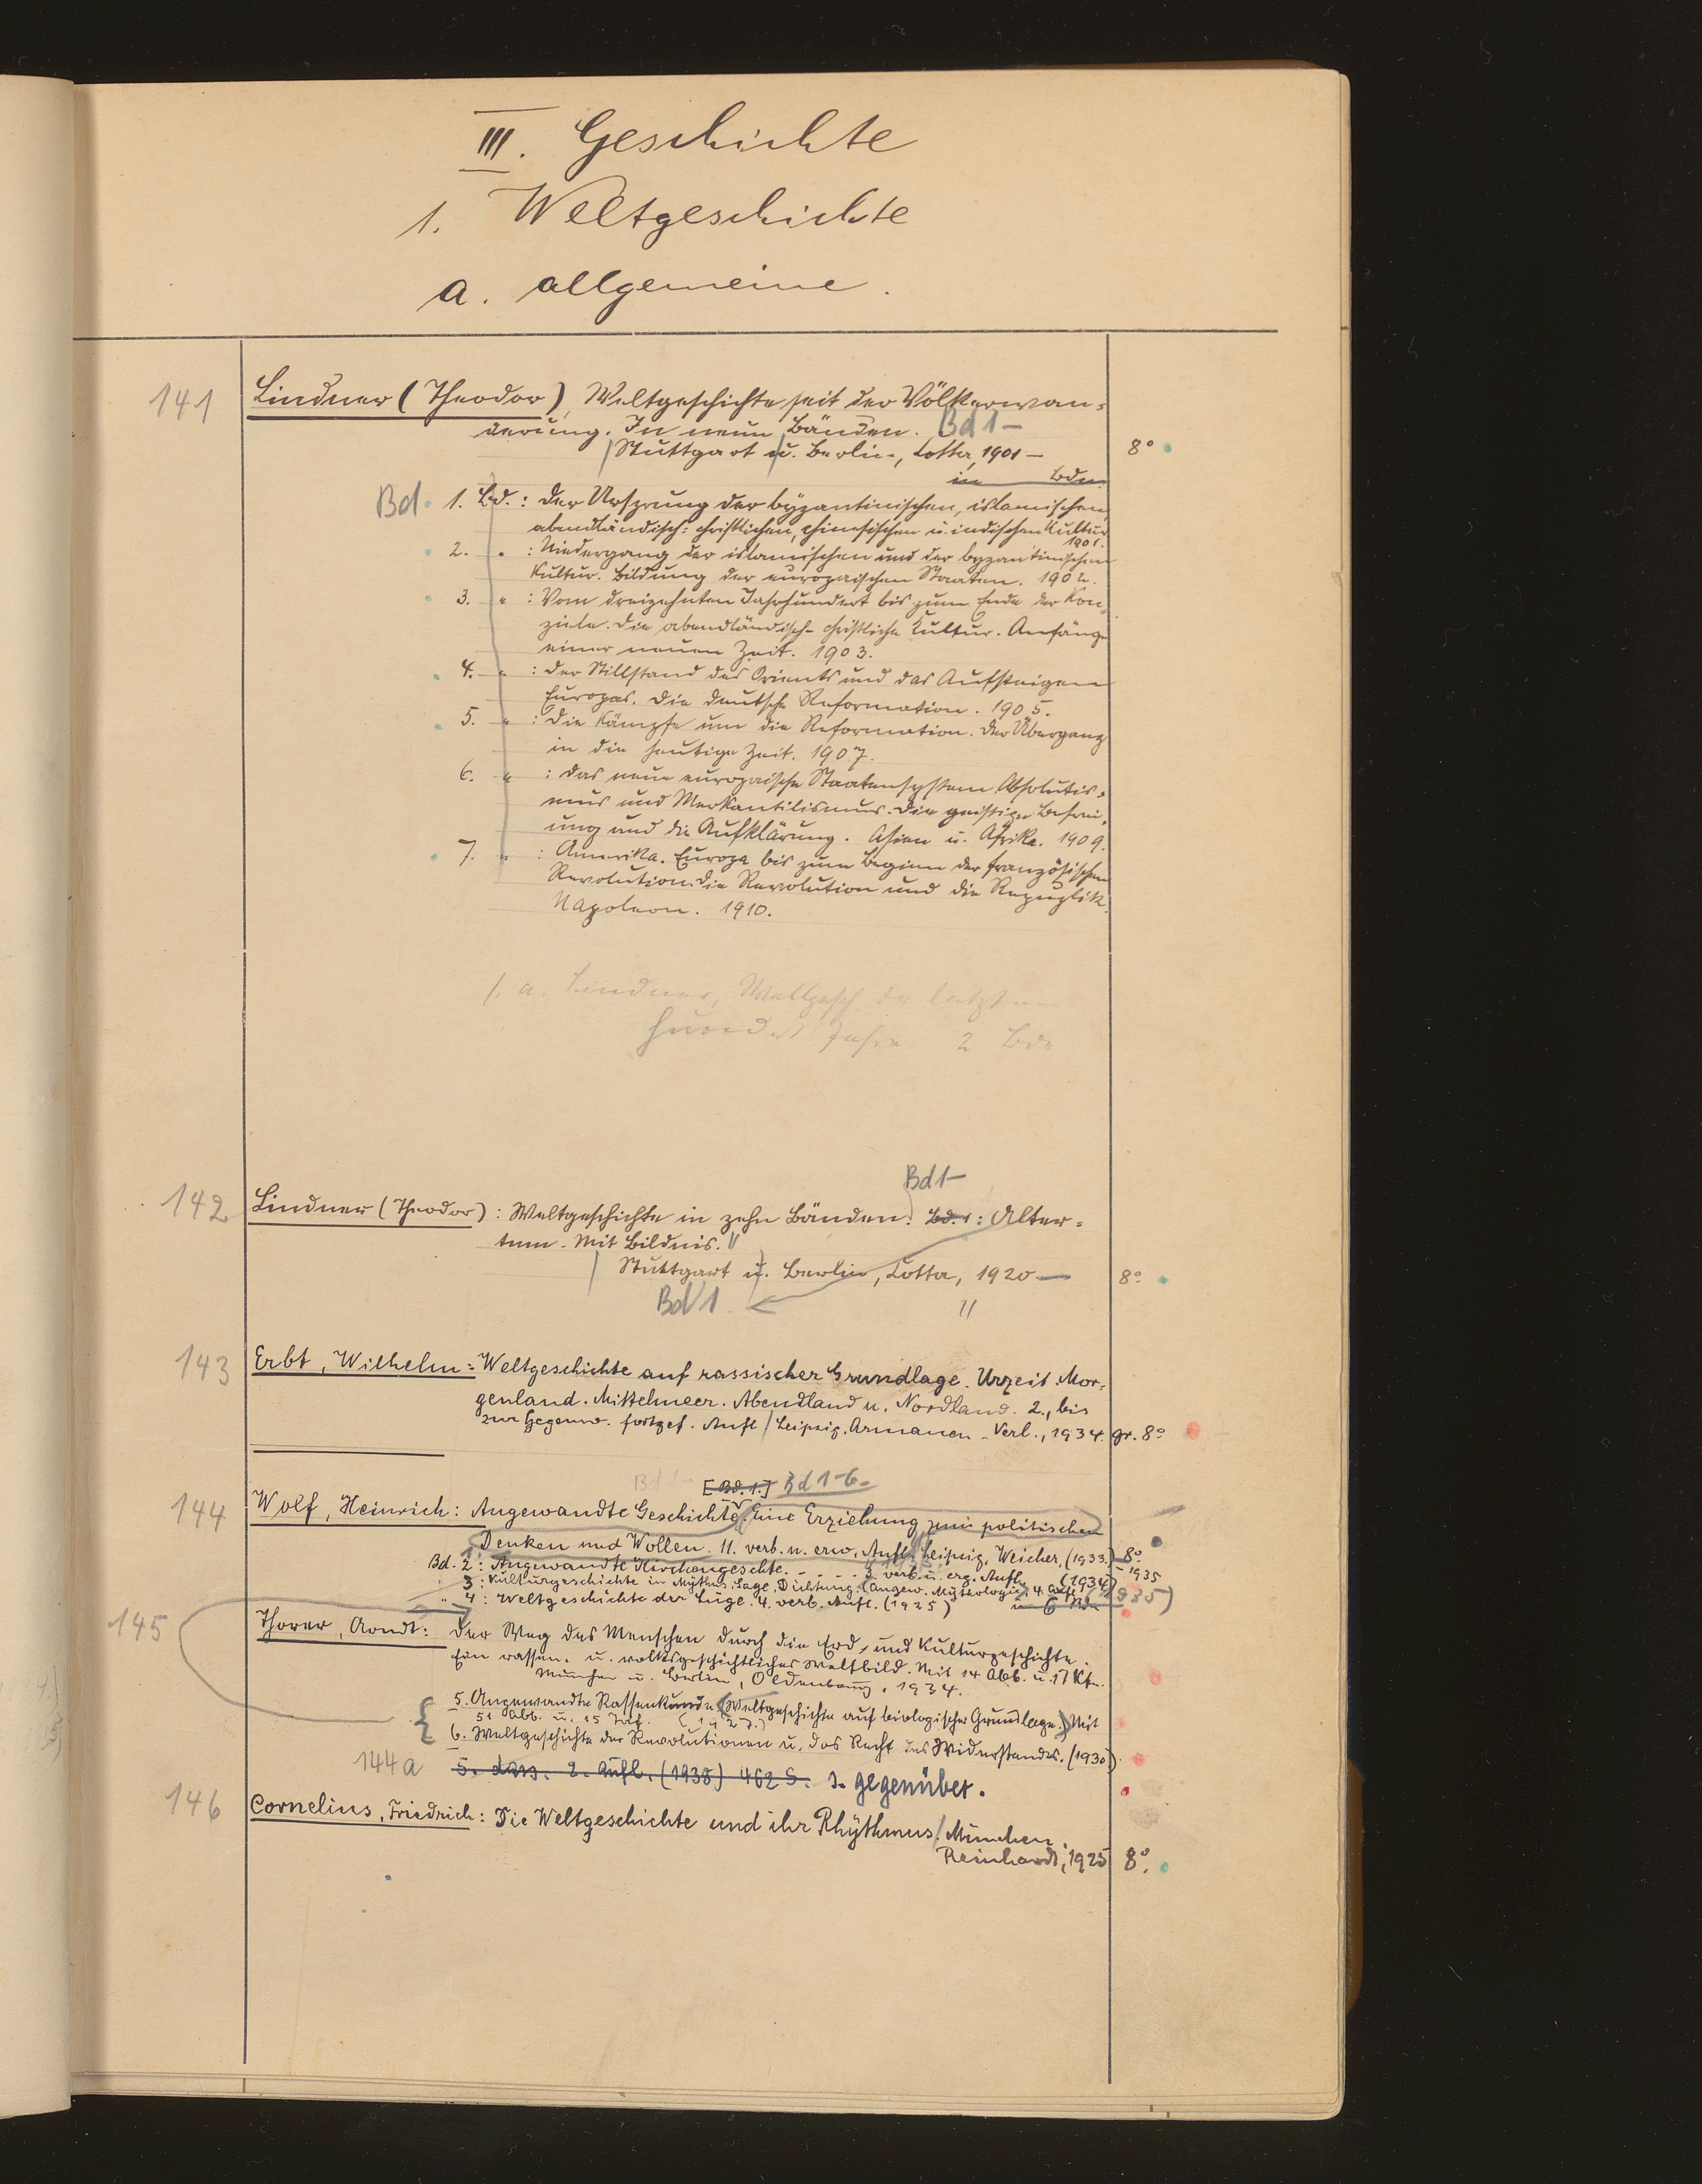 III. Geschichte
1. Weltgeschichte
a. allgemeine.
141 Lindner (Theodor), Weltgeschichte seit der Völkerwan=
derung. In neun Bänden. Bd 1 –
Stuttgart u. Berlin, Cotta, 1901 – 8°
in Bdn.
Bd 1. Bd.: Der Ursprung der byzantinischen, islamischen,
abendländisch=christlichen, chinesischen u. indischen Kultur
1901.
2. " : Niedergang der islamischen und der byzantinischen
Kultur. Bildung der europäischen Staaten. 1902.
3. " : Vom dreizehnten Jahrhundert bis zum Ende der Kon=
zile. Die abendländisch-christliche Kultur. Anfänge
einer neuen Zeit. 1903.
4. " : Der Stillstand des Orients und das Aufsteigen
Europas. Die deutsche Reformation. 1905.
5. " : Die Kämpfe um die Reformation. Der Übergang
in die heutige Zeit. 1907.
6. " : Das neue europäische Staatensystem. Absolutis=
mus und Merkantilismus. Die geistige Befrei=
ung und die Aufklärung. Asien u. Afrika. 1909.
7. " : Amerika. Europa bis zum Beginn der französischen
Revolution. Die Revolution und die Republik.
Napoleon. 1910.
s. a. Lindner, Weltgesch der letzten
hundert Jahre 2 Bde
Bd 1 –
142 Lindner (Theodor): Weltgeschichte in zehn Bänden. Bd. 1: Alter=
tum. Mit Bildnis.
Stuttgart u. Berlin, Cotta, 1920 – 8°
Bd 1.
143 Erbt, Wilhelm: Weltgeschichte auf rassischer Grundlage. Urzeit. Mor=
genland. Mittelmeer. Abendland u. Nordland. 2., bis
zur Gegenw. fortges. Aufl / Leipzig. Armanen-Verl., 1934. gr. 8°
[Bd. 1.] Bd 1-6
144 Wolf, Heinrich: Angewandte Geschichte. Eine Erziehung zum politischen
Denken und Wollen. 11. verb. u. erw. Aufl. Leipzig, Weicher, (1933.) 8°
Bd. 2: Angewandte Kirchengeschte. 3. verb. u. erg. Aufl. (1934) – 1935
3: Kulturgeschichte in Mythus, Sage, Dichtung. (Angew. Mythologie) 4. Aufl (1935)
" 4: Weltgeschichte der Lüge. 4. verb. Aufl. (1925) in 6 Bdn
145 Thorer, Arndt: Der Weg des Menschen durch die Erd- und Kulturgeschichte.
Ein rassen- u. volksgeschichtliches Weltbild. Mit 14 Abb. u. 17 Ktn.
München u. Berlin, Oldenbourg, 1934.
5. Angewandte Rassenkunde (Weltgeschichte auf biologischer Grundlage.) Mit
51 Abb. u. 15 Taf. (1927.)
6. Weltgeschichte der Revolutionen u. das Recht des Widerstandes. (1930)
144a 5. dass. 2. Aufl. (1938) 462 S. s. gegenüber.
146 Cornelius, Friedrich: Die Weltgeschichte und ihr Rhythmus / München,
Reinhardt, 1925 8°.